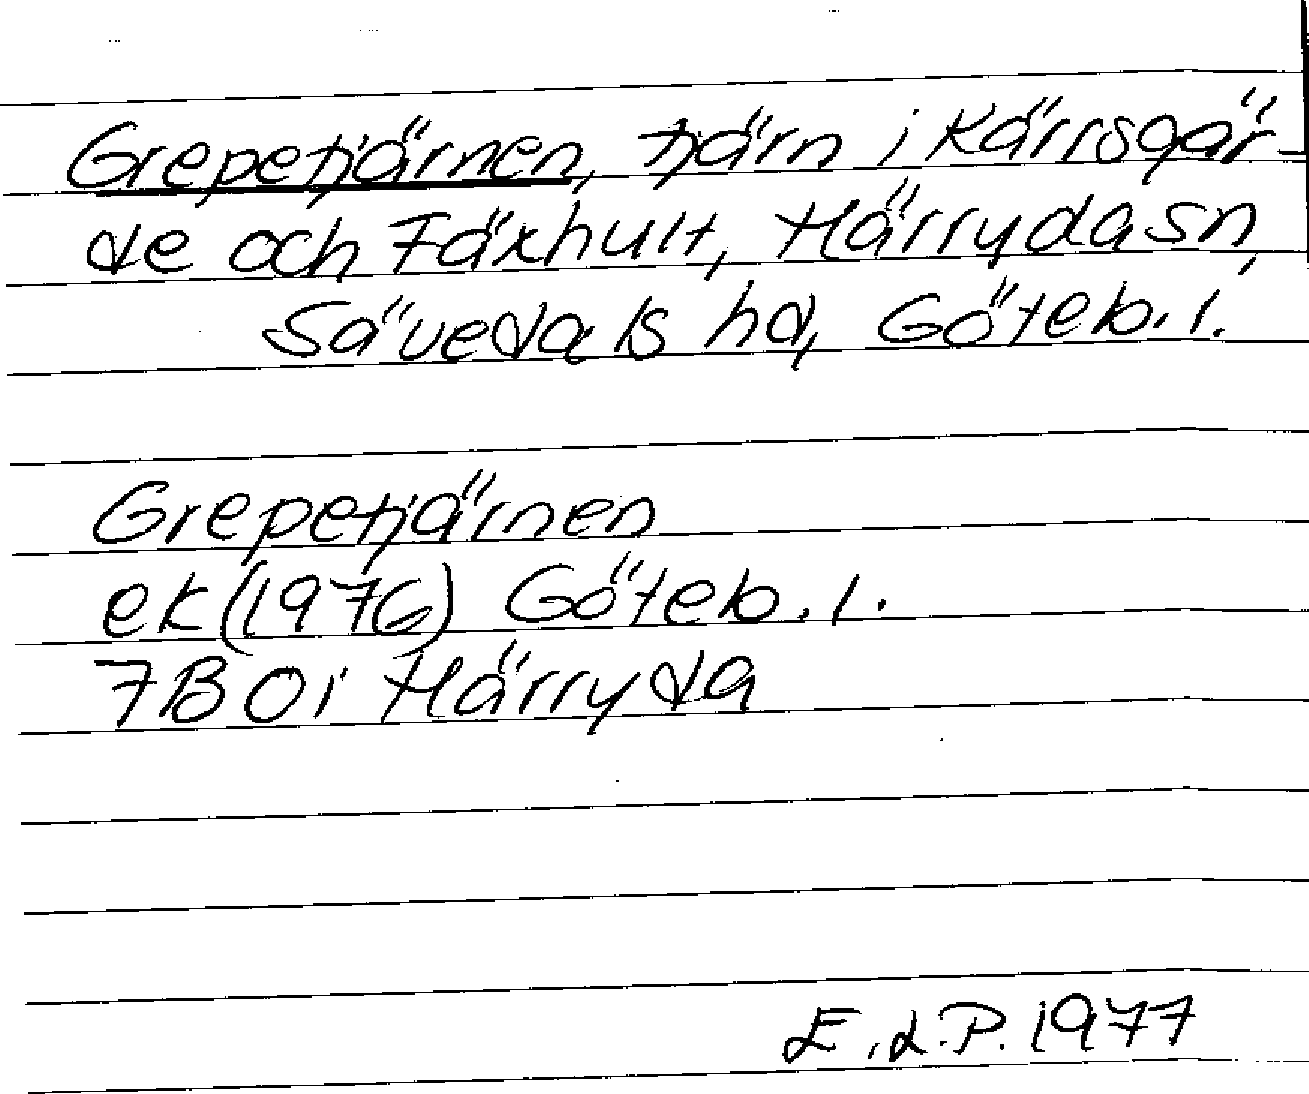 Grepetjärnen, tjärn i Kärrsgär-
de och Fäxhult, Härryda sn,
Sävedals hd, Göteb. l.
Grepetjärnen
ek (1976) Göteb. l.
7B 0i Härryda
E.L.P. 1977